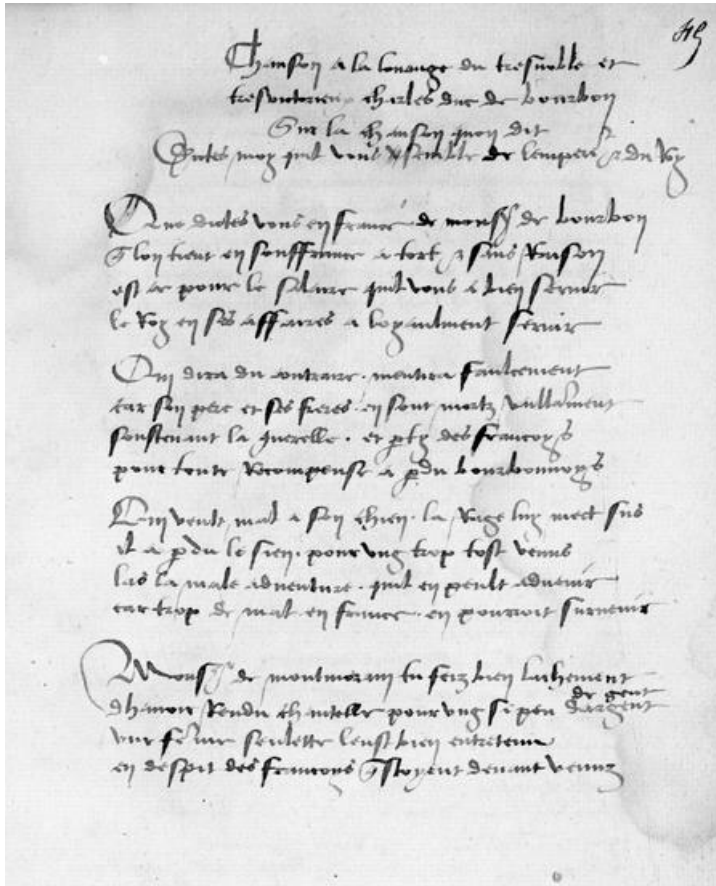 49
Chanson a la louange du tresnoble et
tresvictorieux charles duc de bourbon
Sur la chanson quon dit
Dictes moy quil vous semble de lempereur & du Roy
Que dictes vous en france de monsr de bourbon
q̃ lon tient en souffrance a tort & sans Raison
est ce pour le salaire quil vous a bien servir
le Roy en ses affaires a loyaulment servir
Qui dira du contraire mentira faulcement
car son pere et ses freres en sont mortz vaillãment
soustenant la querelle et ꝑty des francoys
pour toute Recompense a ꝑdu bourbonnoys
Qui veult mal a son chien la Rage luy mect sus
il a ꝑdu le sien pour ung trop tost venus
las la male adventure quil en peult advenir
car trop de mal en france en pourroit survenir
Monsr de montmoram tu feiz bien laschement
dhavoir Rendu chantelle pour ung si peu dargent
de gent
une fẽme seulette leust bien entretenu
en despit des francoys q̃ stoyent devant venuz